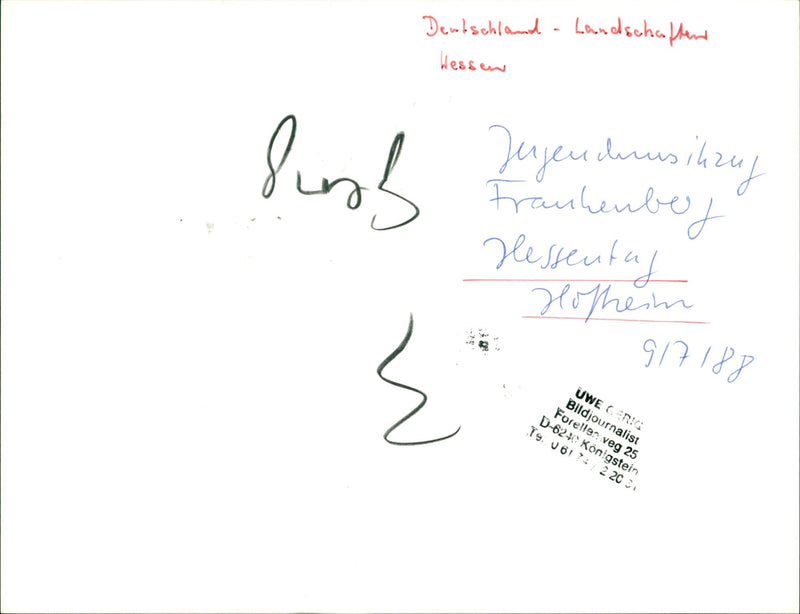 Deutschland - Landschaften
Hessen
Jugendmusikzug
Frankenberg
Hessentag
Hofheim
9/7/88
UWE GERIG
Bildjournalist
Forellenweg 25
D-6240 Königstein